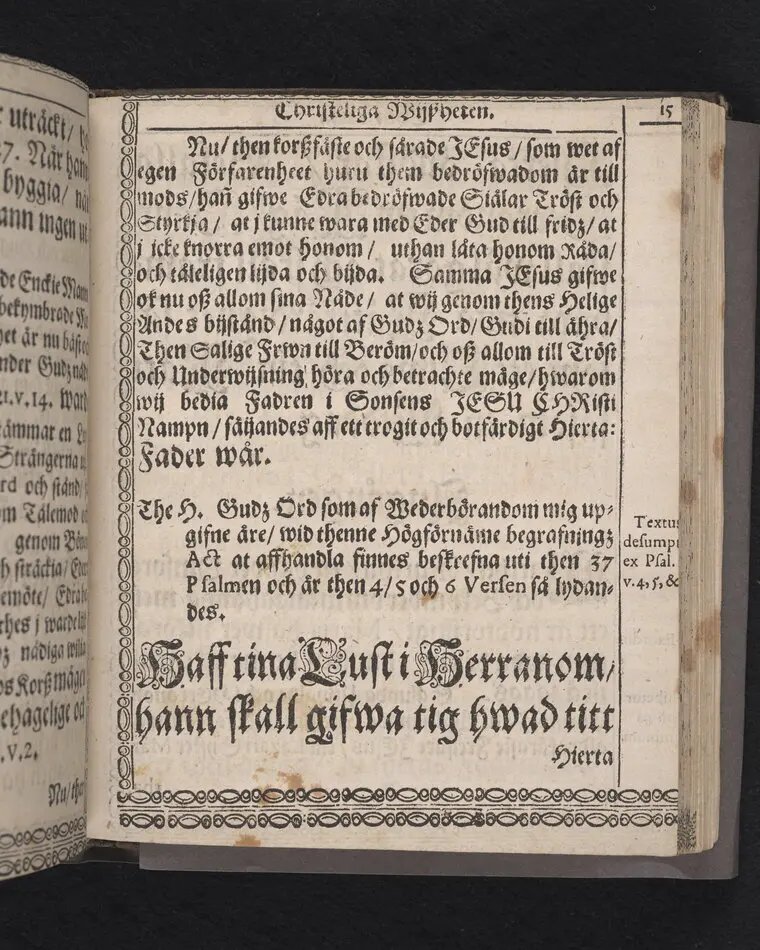 r uträckt/
7. När han
byggia/
ann ingen
de Enckie
bekymbrade
är nu
nder Gudz
21. v. 14.
ämmar en
Strängerna
rd och ständ/
m Tålemod
genom
h sträckia/
emöte/
thes j
nådiga
os Korß
ehagelige
.v.2.
Nu/
Christeliga Wijßheten. 15
Nu/ then korßfäste och sårade JEsus/ som wet af
egen Förfarenheet huru them bedröfwadom är till
mods/ hañ gifwe Edra bedröfwade Siälar Tröst och
Styrkja/ at j kunne wara med Eder Gud till fridz/ at
j icke knorra emot honom/ uthan låta honom Råda/
och tåleligen lijda och bijda. Samma JEsus gifwe
ok nu oß allom sina Nåde/ at wij genom thens Helige
Andes bijstånd/ något af Gudz Ord/ Gudi till ähra/
Then Salige Frwn till Beröm/ och oß allom till Tröst
och Underwijsning höra och betrachte måge/ hwarom
wij bedia Fadren i Sonsens JESU CHRisti
Nampn/ säijandes aff ett trogit och botfärdigt Hierta:
Fader wår.
The H. Gudz Ord som af Wederbörandom mig up-
gifne äre/ wid thenne Högförnäme begrafningz
Act at affhandla finnes beskrefna uti then 37
Psalmen och är then 4/ 5 och 6 Versen så lydan-
des.
Textus
desumpt
ex Psal.
v. 4, 5, &
Haff tina Lust i Herranom/
hann skall gifwa tig hwad titt
Hierta